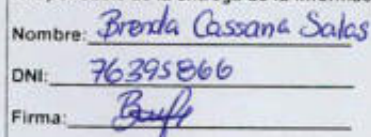 Nombre: Brenda Cassana Salas
DNI: 76395866
Firma: